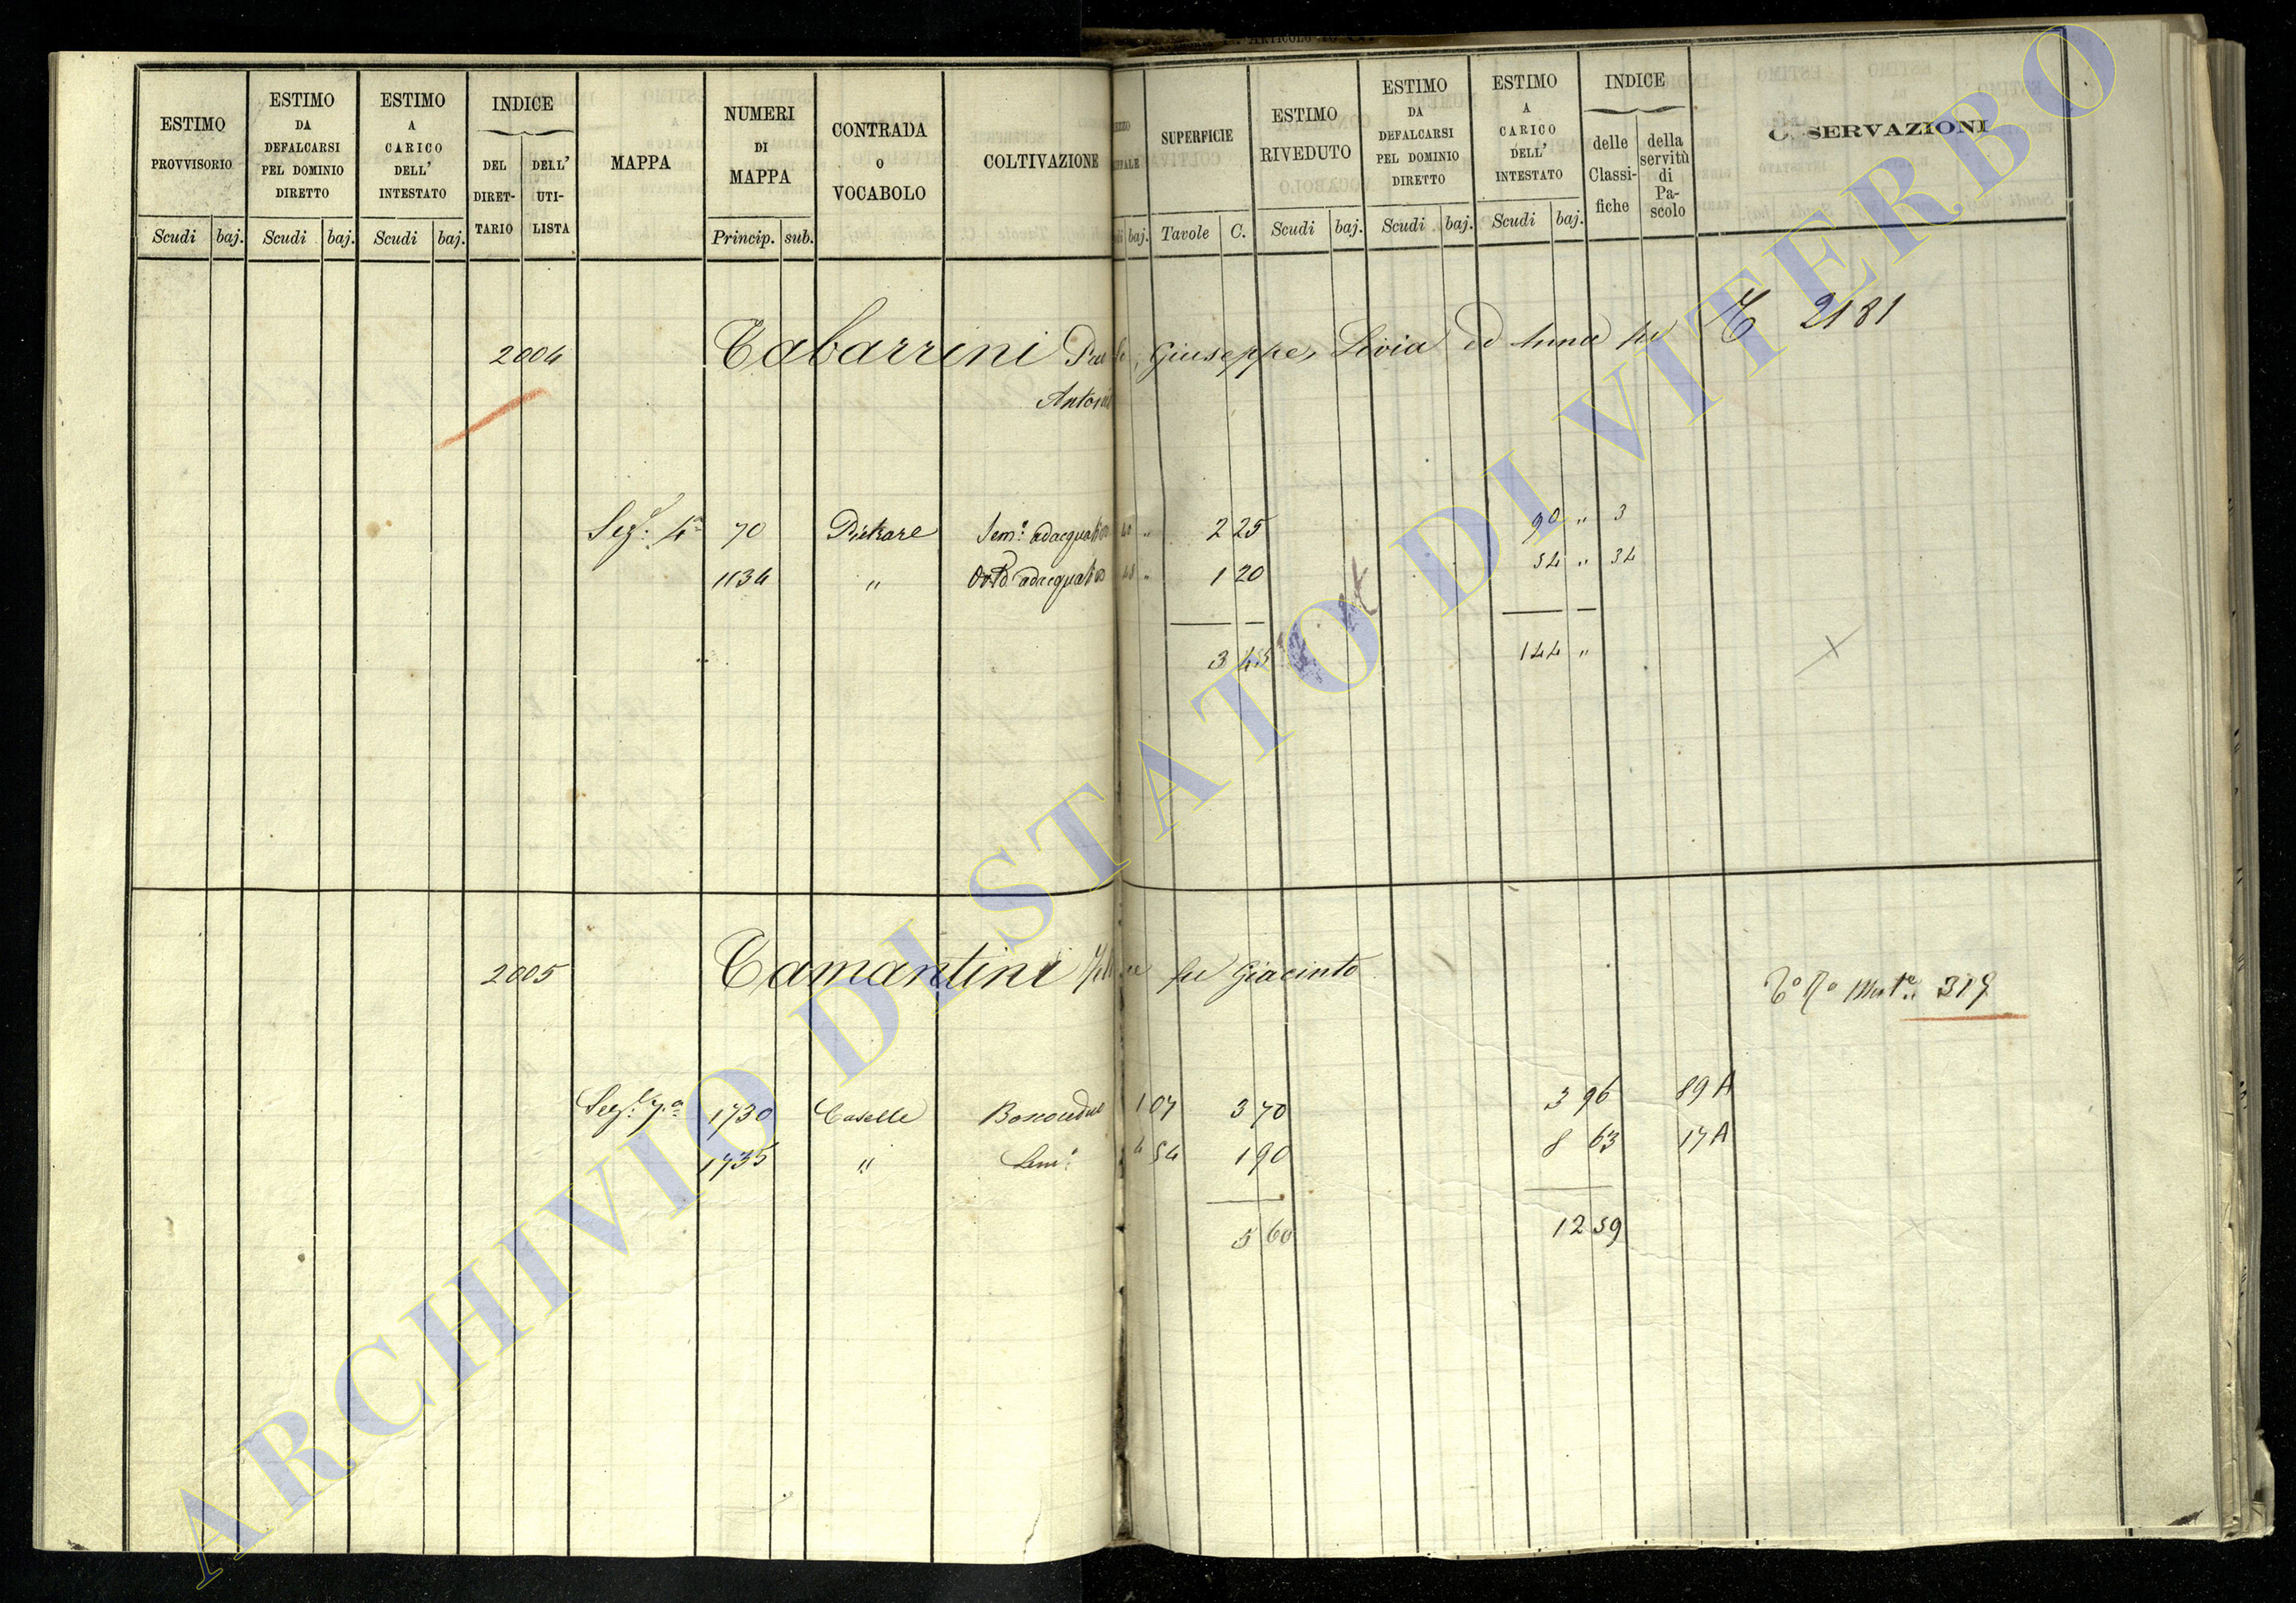 ESTIMO PROVVISORIO
Scudi baj.
ESTIMO DA DEFALCARSI PEL DOMINIO DIRETTO
Scudi baj.
ESTIMO A CARICO DELL' INTESTATO
Scudi baj.
INDICE
DEL DIRET-TARIO
DELL' UTI-LISTA
MAPPA
NUMERI DI MAPPA
Princip. sub.
CONTRADA O VOCABOLO
COLTIVAZIONE
baj.
SUPERFICIE
Tavole C.
ESTIMO RIVEDUTO
Scudi baj.
ESTIMO DA DEFALCARSI PEL DOMINIO DIRETTO
Scudi baj.
ESTIMO A CARICO DELL' INTESTATO
Scudi baj.
INDICE
delle Classi-fiche
della servitù di Pa-scolo
O SERVAZIONI
2004 Tabarrini Giuseppe, Livia ed Anna fu T 2181
Antoni
Sez.e 4a 70 Pietrare Sem.o adacquativo 40 " 2 25 90 " 3
1134 " Orto adacquativo 45 " 1 20 54 " 34
3 45 144 "
2005 Tamantini fu Giacinto
319
Sez.e 7a 1730 Caselle 1 07 3 70 3 96 89 A
1735 " Sem.o 4 54 1 90 8 63 17 A
5 60 12 59
ARCHIVIO DI STATO DI VITERBO